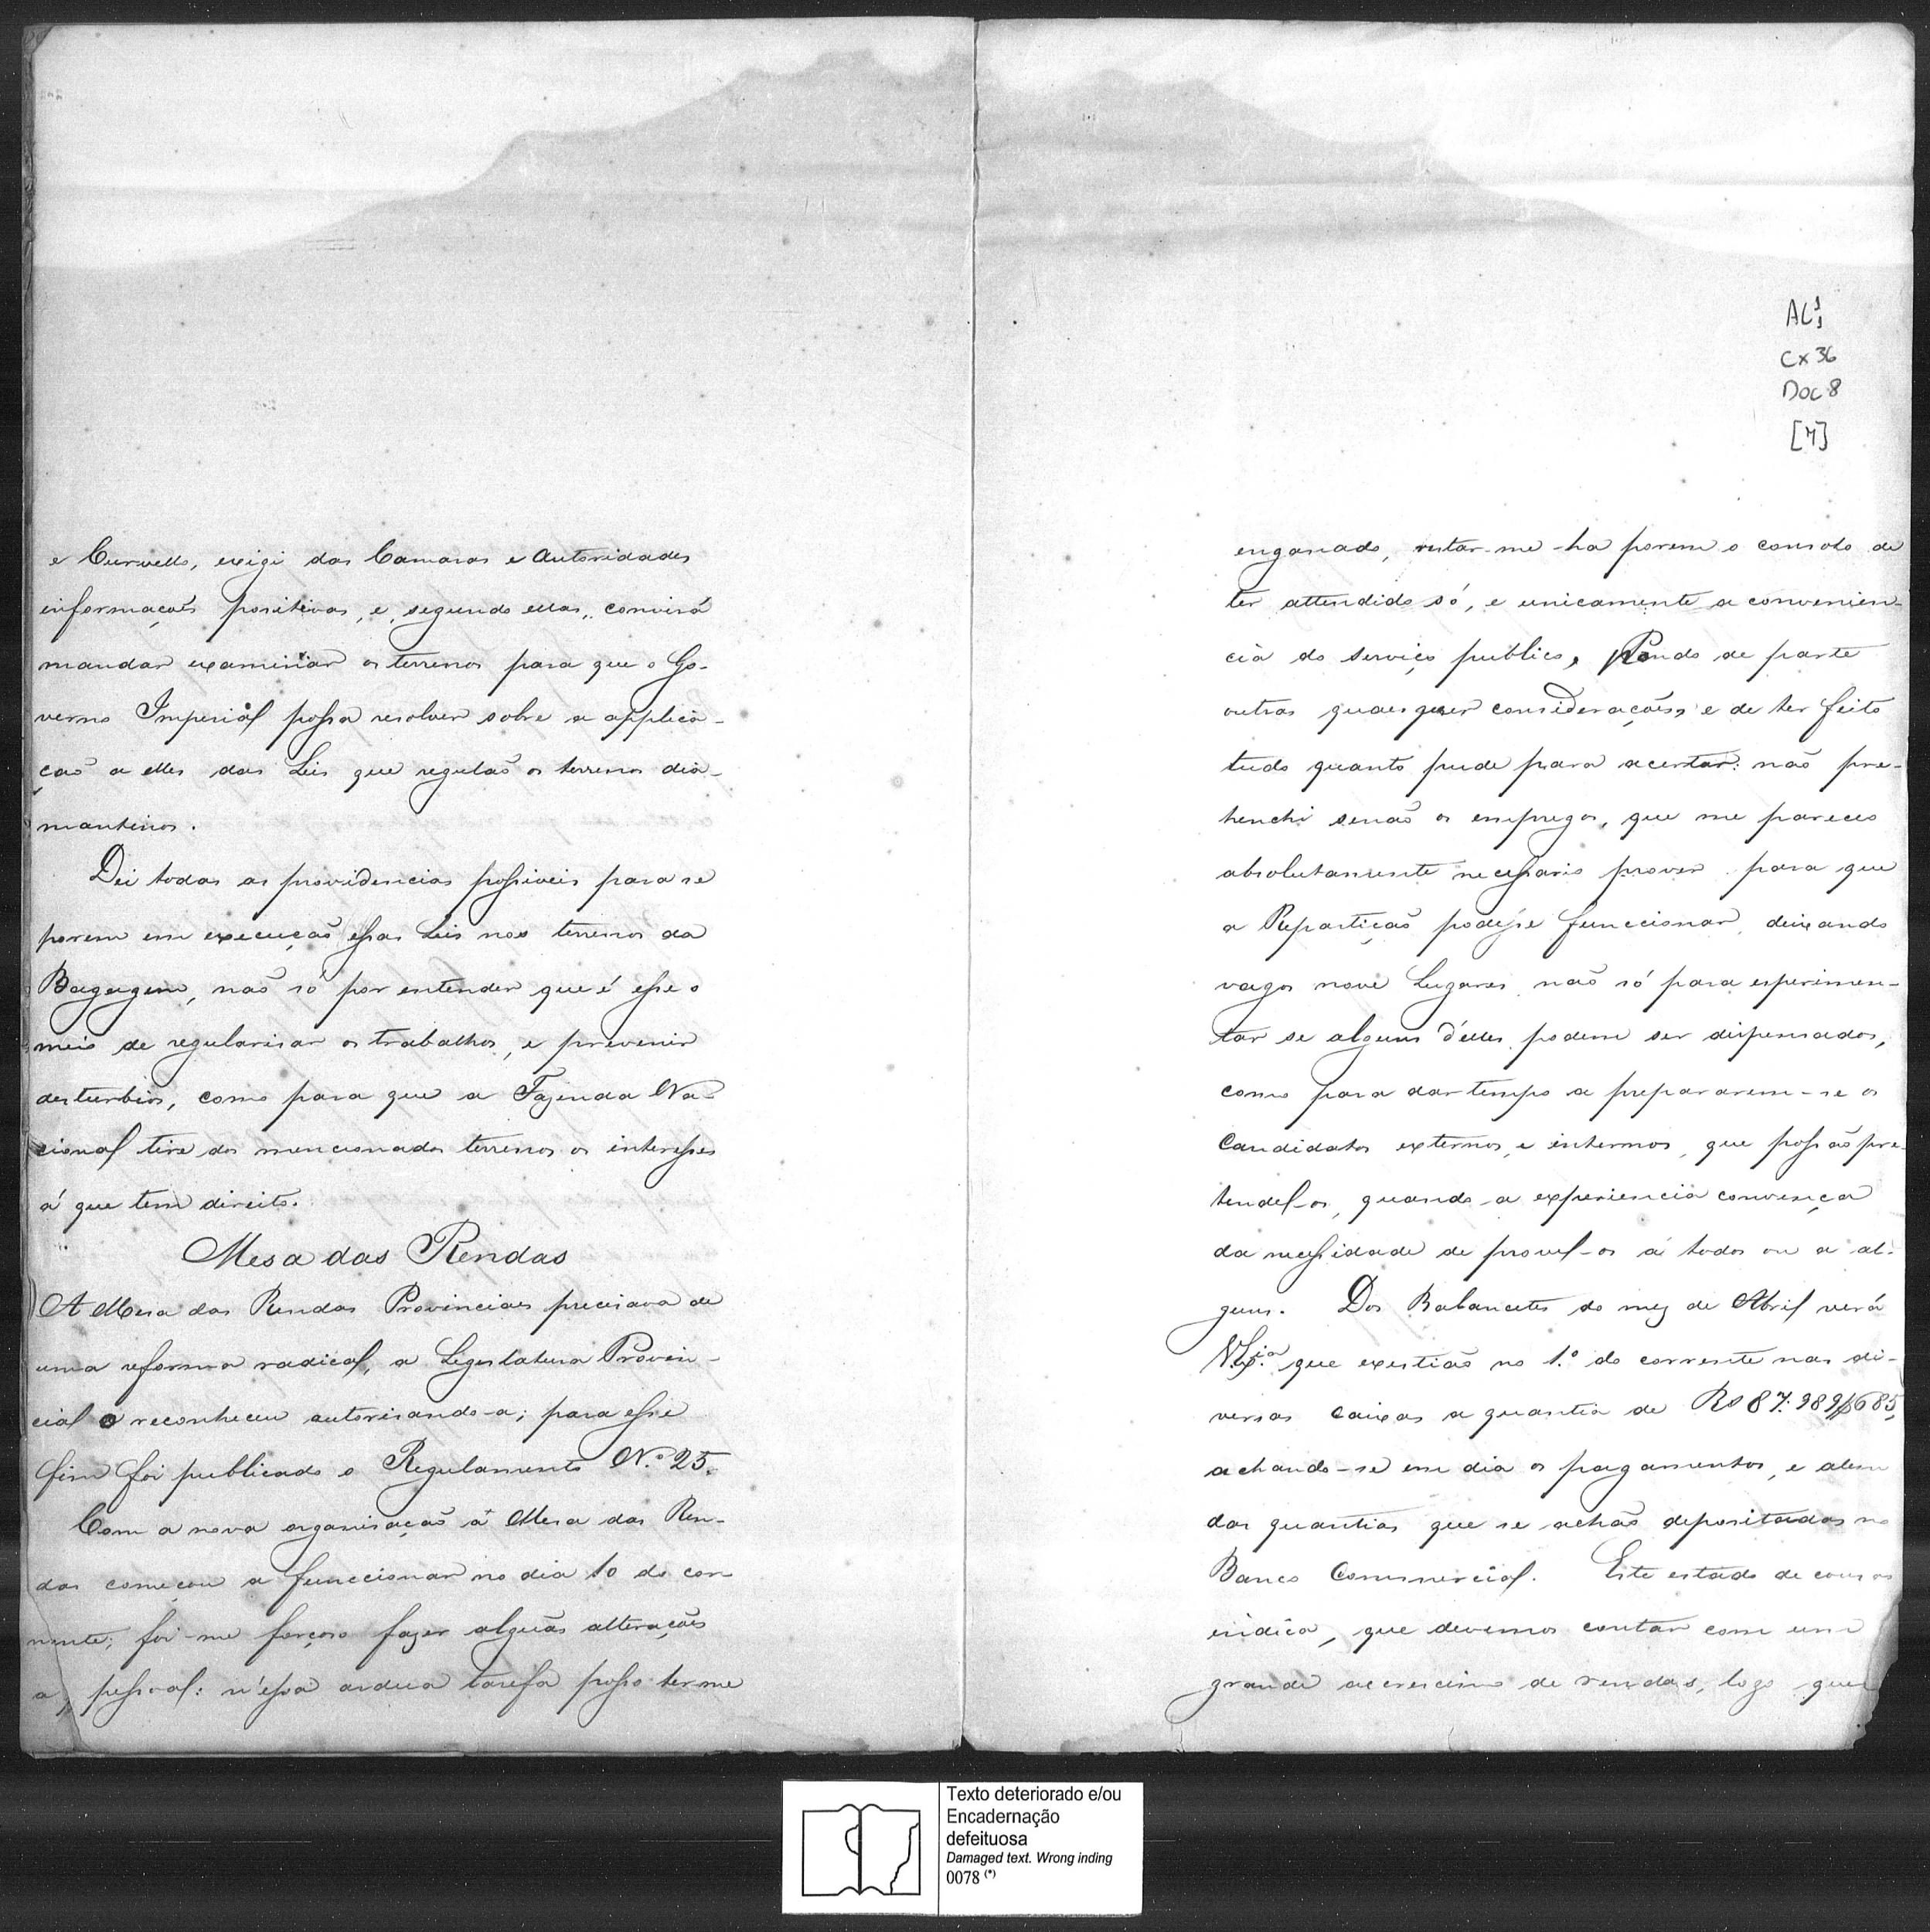 e Curvello, exigi das Camaras e Autoridades
informações positivas, e, segundo ellas, convirá
mandar examinar os terrenos para que o Go-
verno Imperial possa resolver sobre a applica-
ção a elles das Leis que regulão os terrenos dia-
mantinos.
Dei todas as providencias possiveis para se
porem em execução essas Leis nos terrenos da
Bagagem, não só por entender que é esse o
meio de regularisar os trabalhos, e prevenir
disturbios, como para que a Fazenda Na-
cional tire dos mencionados terrenos os interesses
á que tem direito.
Mesa das Rendas
A Mesa das Rendas Provinciaes precisava de
uma reforma radical, a Legislatura Provin-
cial o reconheceu autorisando-a; para esse
fim foi publicado o Regulamento N.º 25.
Com a nova organisação a Mesa das Ren-
das começou a funccionar no dia 10 do cor-
rente; foi-me forçoso fazer alguãs alterações
a pessoal: n'essa ardua tarefa posso ter-me
AC¹
Cx 36
Doc 8
[7]
enganado, restar-me-ha porem o consolo de
ter attendido só, e unicamente a convenien-
cia do serviço publico, Pondo de parte
outras quaesquer considerações, e de ter feito
tudo quanto pude para acertar: não pre-
henchi senão os empregos, que me pareceo
absolutamente necessario prover para que
a Repartição podésse funccionar, deixando
vagos nove Lugares não só para experimen-
tar se alguns d'elles podem ser dispensados,
como para dar tempo a prepararem-se os
Candidatos externos, e internos, que possão pre-
tendel-os, quando a experiencia convença
da necessidade de provel-os á todos ou a al-
guns. Dos Balancetes do mez de Abril verá
V. Ex.ia que existião no 1.º do corrente nas di-
versas caixas a quantia de Rs 87:989$685,
achando-se em dia os pagamentos, e alem
das quantias que se achão depositadas no
Banco Commercial. Este estado de cousas
indica, que devemos contar com um
grande accrescimo de rendas, logo que
Texto deteriorado e/ou
Encadernação
defeituosa
Damaged text. Wrong inding
0078 (*)